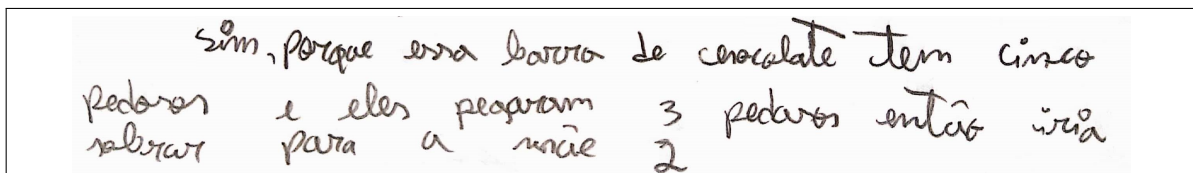 sim, porque essa barra de chocolate tem cinco
pedasos e eles pegaram 3 pedasos então iria
sobrar para a mãe 2